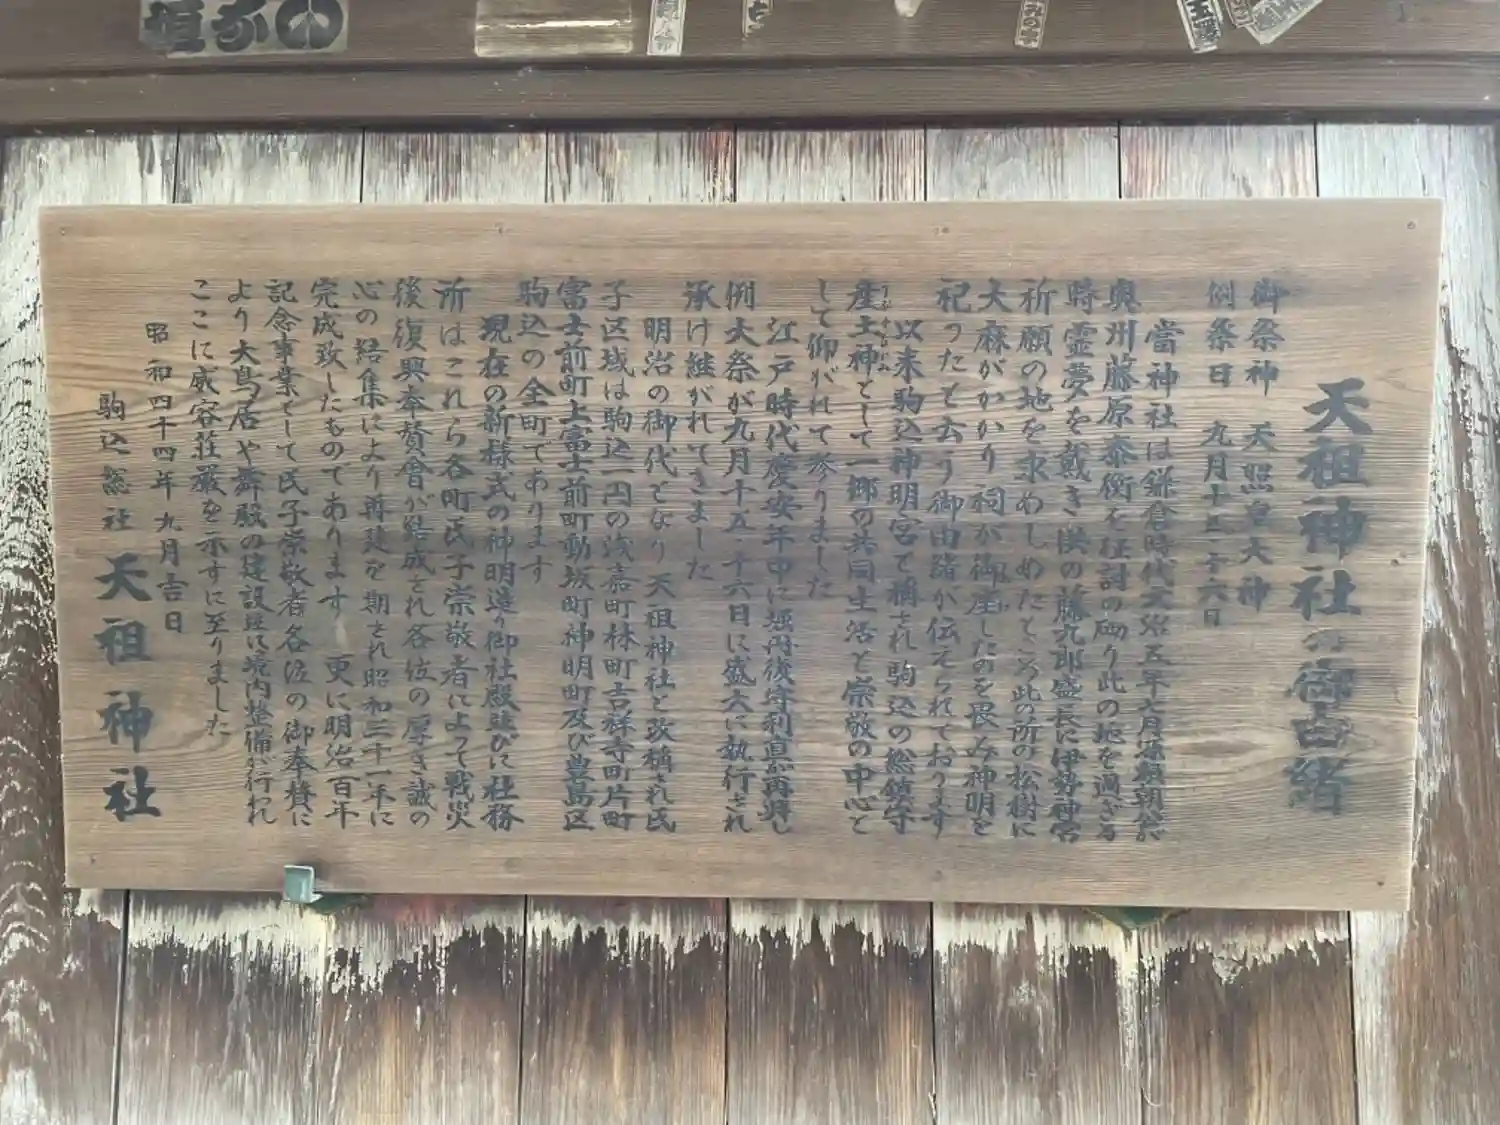 天祖神社の御由緒
御祭神　天照皇大神
例祭日　九月十五、十六日
當神社は鎌倉時代文治五年七月源頼朝公が
奥州藤原泰衡を征討の砌り此の地を過ぎる
時霊夢を戴き供の藤九郎盛長に伊勢神宮
祈願の地を求めしめたところ此の所の松樹に
大麻がかかり祠が御座したのを畏み神明を
祀ったと云う御由緒が伝えられております
以来駒込神明宮と稱され駒込の総鎮守
産土神として一郷の共同生活と崇敬の中心と
うぶすながみ
して仰がれて参りました
江戸時代慶安年中に堀丹後守利直が再興し
例大祭が九月十五、十六日に盛大に執行され
承け継がれてきました
明治の御代となり天祖神社と改稱され氏
子区域は駒込一円の浅嘉町林町吉祥寺町片町
富士前町上富士前町動坂町神明町及び豊島区
駒込の全町であります
現在の新様式の神明造り御社殿並びに社務
所はこれら各町氏子崇敬者によって戦災
後復興奉賛會が結成され各位の厚き誠の
心の結集により再建を期され昭和三十一年に
完成致したものであります　更に明治百年
記念事業として氏子崇敬者各位の御奉賛に
より大鳥居や舞殿の建設並に境内整備が行われ
ここに威容荘厳を示すに至りました
昭和四十四年九月吉日
駒込総社　天祖神社